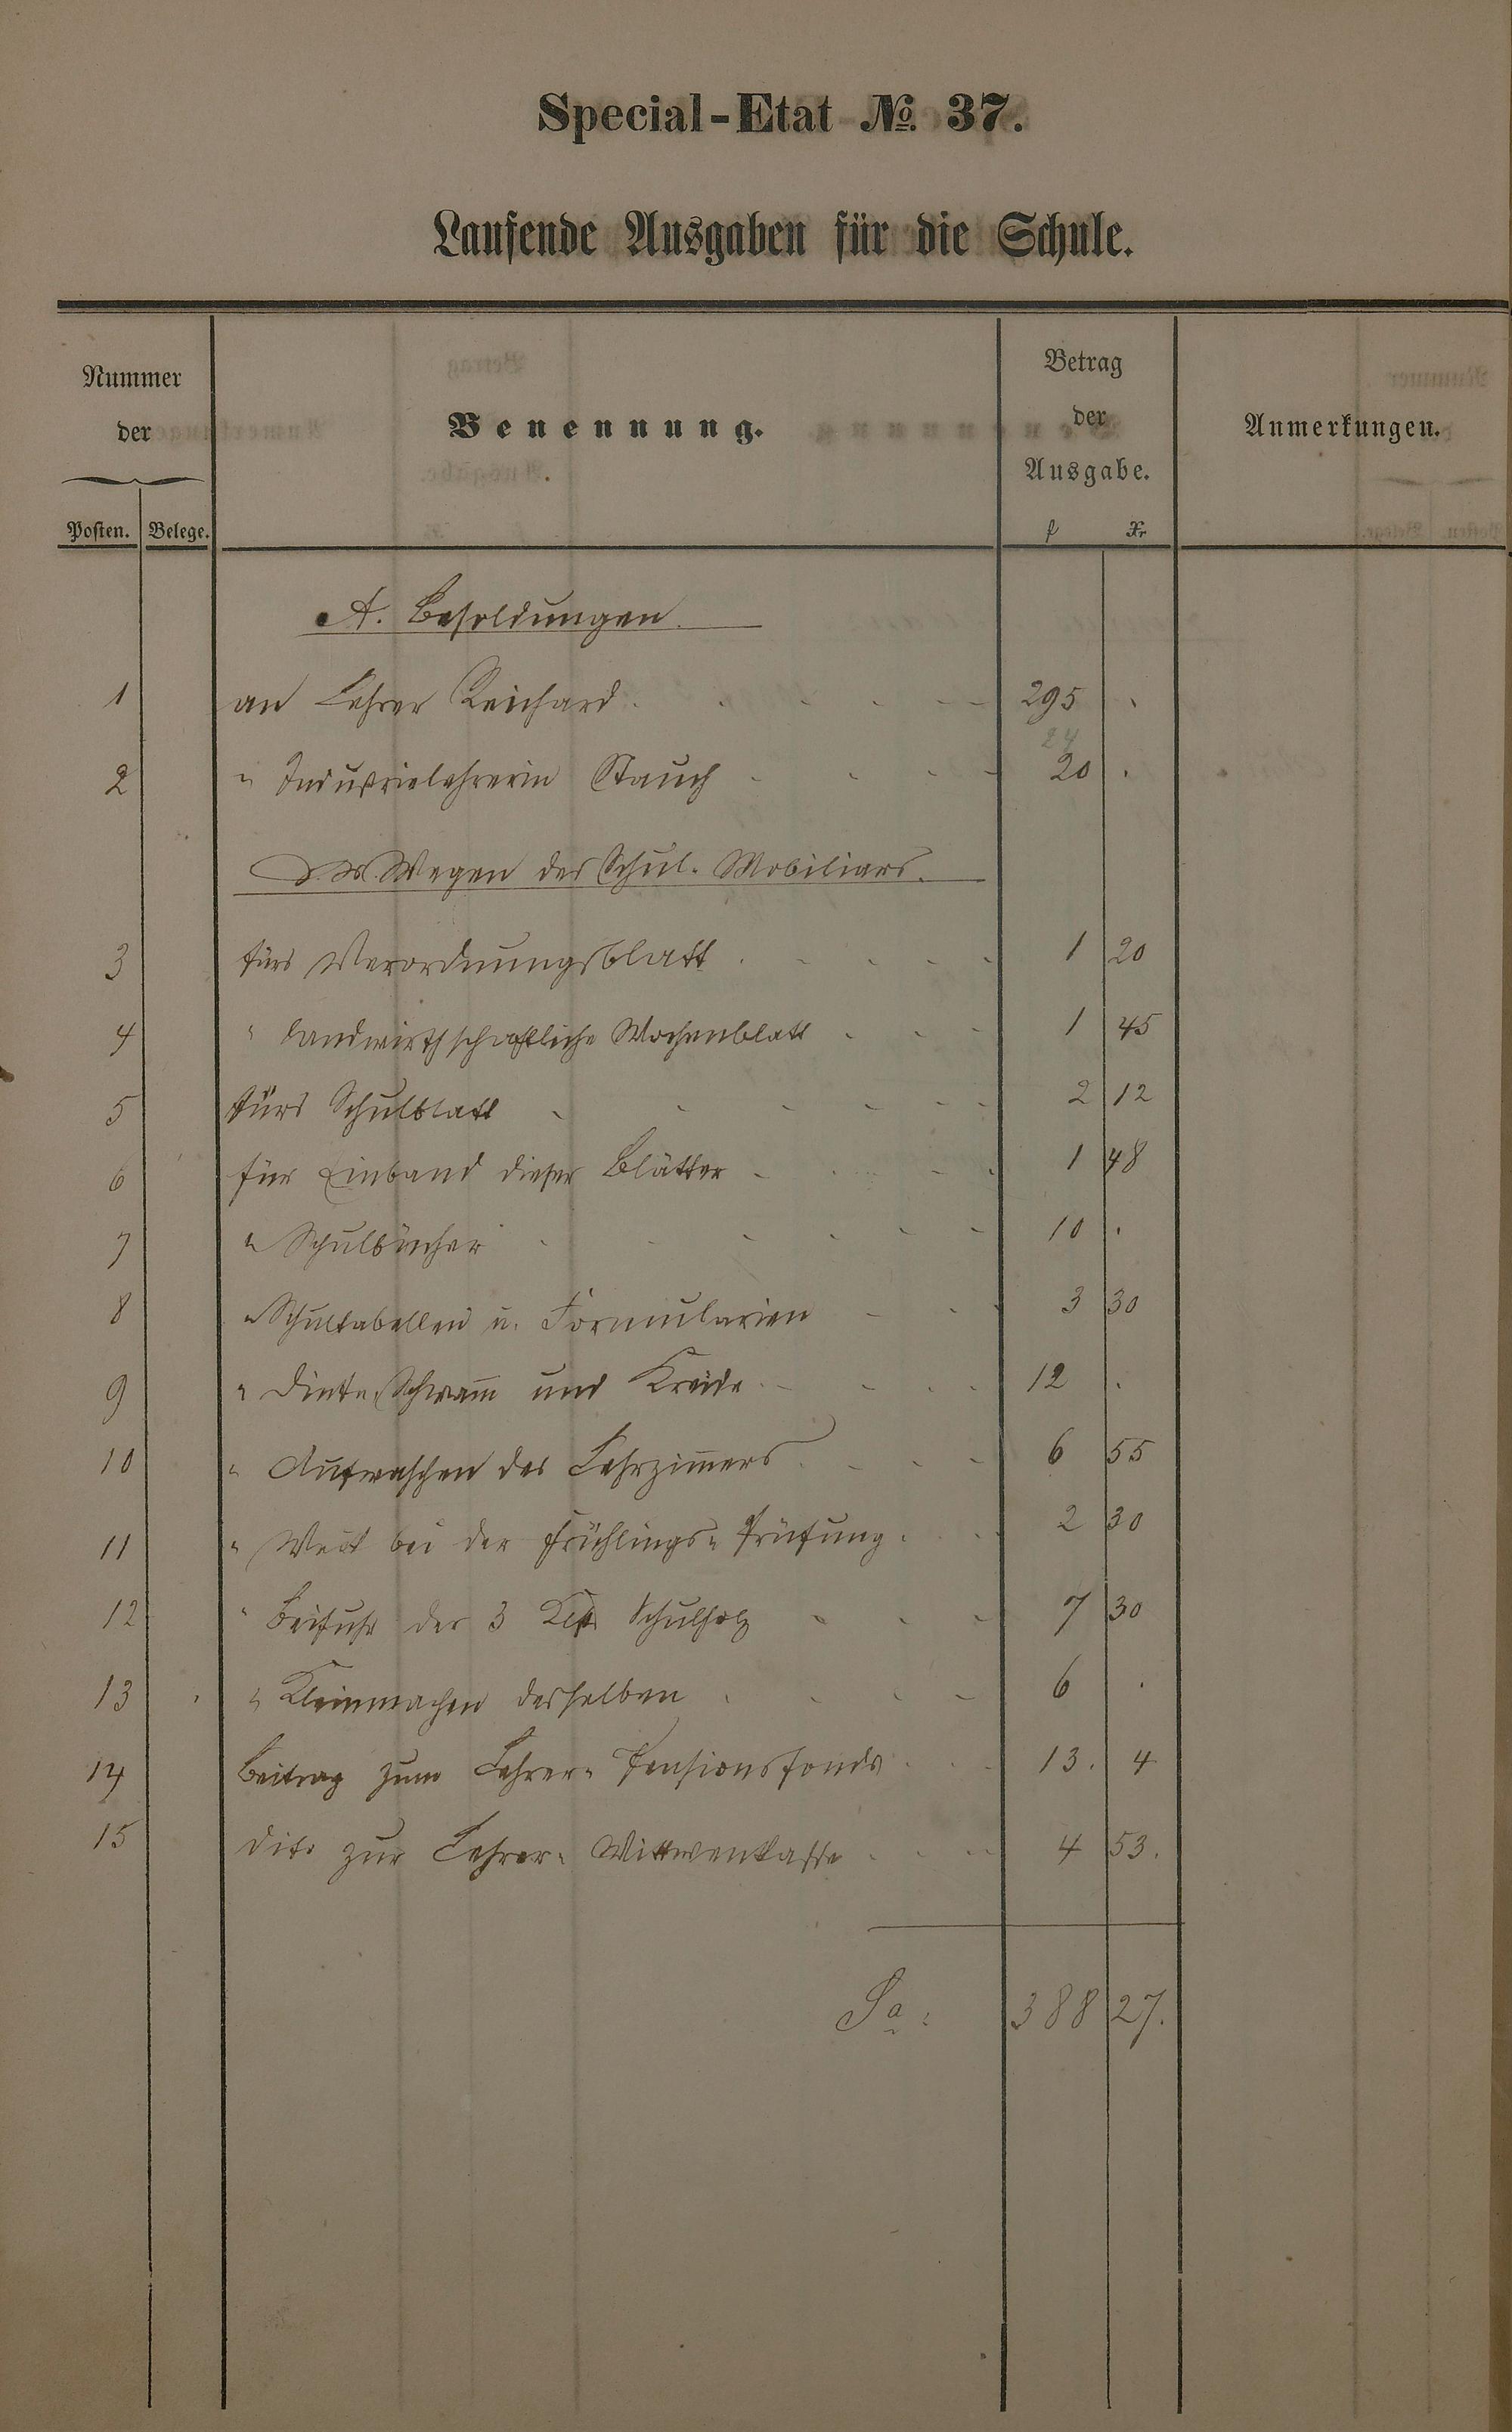 Special-Etat No. 37.
Laufende Ausgaben für die Schule.
Nummer der
Posten. Belege.
Benennung.
Betrag der Ausgabe.
f Xr
Anmerkungen.
A. Besoldungen.
1 an Lehrer Reichard 295 .
24
2 " Industrielehrerin Stauch 20 .
Wegen des Schul-Mobiliars.
3 fürs Verordnungsblatt 1 20
4 " landwirthschaftliche Wochenblatt 1 45
5 fürs Schulblatt 2 12
6 für Einband dieser Blätter 1 48
7 " Schulbücher 10 .
8 " Schultabellen u. Formularien 3 30
9 " Dinte, Schwam̅ und Kreide 12 .
10 " Aufwaschen des Lehrzim̅ers 6 55
11 " bei der Frühlings-Prüfung 2 30
12 " Beifuhr der 3 Klft. Schulholz 7 30
13 " Kleinmachen desselben 6 .
14 Beitrag zum Lehrer-Pensionsfonds 13. 4
15 dito zur Lehrer-Wittwenkasse 4 53.
Sa: 388 27.